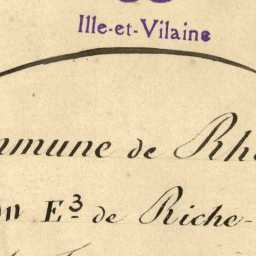 Ille-et-Vilaine
mmune de Rh
on E3 de Riche-